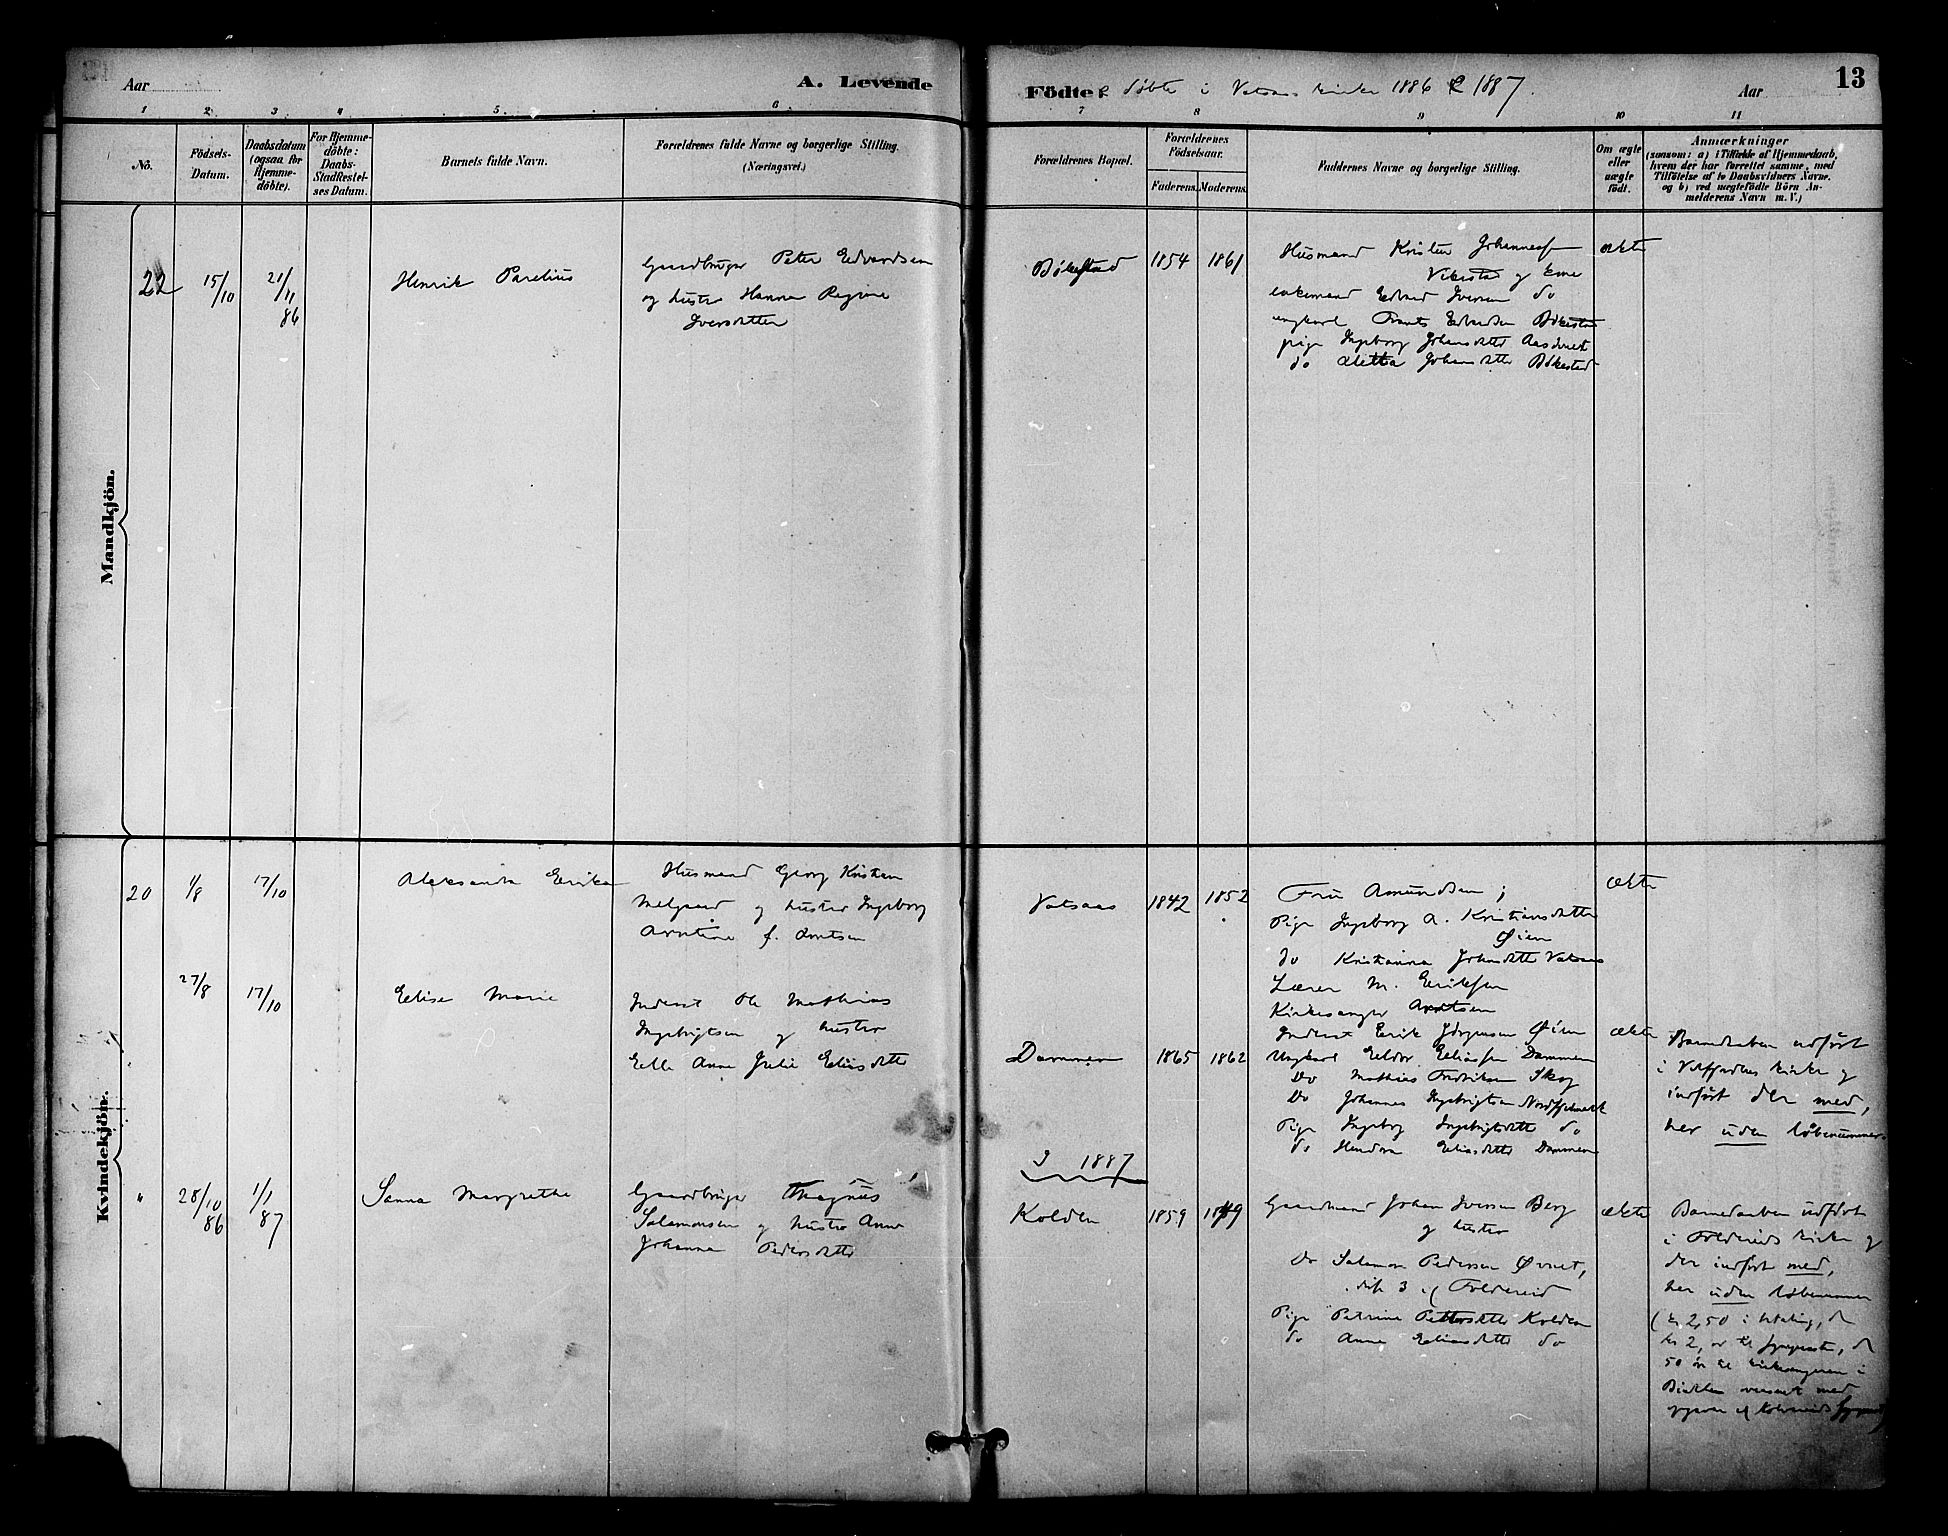 Aar
A. Levende
Födte döbte i Vatsaas kirke 1886 & 1887.
Aar
13
1 2. 3. 4 5. 6.
7 8 9 10 11
No.
Födsels-
Datum.
Daabsdatum
(ogsaa for
Hjemme-
döbte).
For Hjemme-
döbte:
Daabs-
Stadfestel-
ses Datum.
Barnets fulde Navn.
Forældrenes fulde Navne og borgerlige Stilling.
(Næringsvei.)
Forældrenes Bopæl.
Forældrenes
Födselsaar.
Faderens. Moderens.
Faddernes Navne og borgerlige Stilling.
Om ægte
eller
uægte
födt.
Anmærkninger
(saasom: a) i Tilfælde af Hjemmedaab,
hvem der har forrettet samme, med
Tilföielse af to Daabsvidners Navne.
og b) ved uægtefödte Börn An-
melderens Navn m. V.)
Mandkjön.
22
15/10
21/11
86
Henrik Parelius
Gaardbruger Peter Edvardsen
og hustru Hanna Regine
Iversdatter
Bökestad
1854
1861
Husmand Kristen Johannes
Vikestad og kone
enkemand Edvard Iversen do
ungkarl Frants Edvardsen Bökestad
pige Ingeborg Johansdatter
do Aletta Johansdatter Bökestad
ækte
Kvindekjön.
20
1/8
17/10
Aleksandra Erika
Husmand Georg Kristian
Melgaard og hustru Ingeborg
f. Arntsen
Vatsaas
1842
1852
Fru Amundsen;
Pige Ingeborg A. Kristiansdatter
Øien
do Kristianna Johnsdatter Vatsaas
Lærer M. Eriksen
Kirkesanger Arntsen
ækte
27/8
17/10
Elise Marie
Inderst Ole Mathias
Ingebrigtsen og hustru
Anne Julie Eliasdatter
Dammen
1865
1862
Inderst Erik Jörgensen Øien
Ungkarl Eliassen Dammen
Do Mathias Fredriksen Skog
Do Johannes Ingebrigtsen
Pige Ingeborg Ingebrigtsdatter do
do Eliasdatter Dammen
ækte
Barnedaaben udfört
i Velfjordens kirke og
indfört der med,
her uden löbenummer.
I 1887
"
28/10
86
1/1
87
Sanna Margrethe
Gaardbruger Magnus
Salamonsen og hustru Anne
Johanna Pedersdatter
Kolden
1859
1849
Gaardmand Johan Iversen Berg
og hustru
Do Salamon Pedersen Øvnet,
disse 3 af Foldereid
Pige Petrine Pettersdatter Kolden
do Anne Eliasdatter do
ækte
Barnedaaben udfört
i Foldereids kirke og
der indfört med,
her uden löbenummer
(kr 2,50 i betaling,
50 öre til kirkesangeren i
Bindalen oversendt med